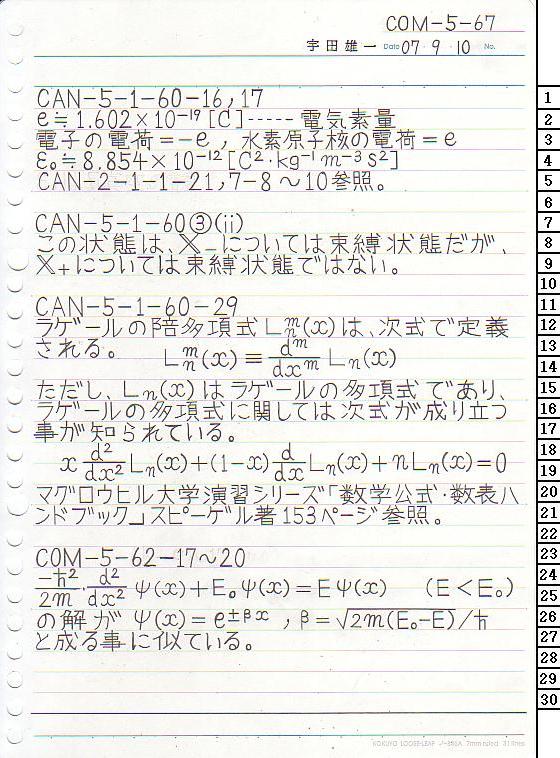 COM-5-67
宇田雄一 Date 07・9・10 No.
CAN-5-1-60-16,17
e≒1.602×10⁻¹⁹[C]-----電気素量
電子の電荷=-e,水素原子核の電荷=e
ε₀≒8.854×10⁻¹²[C²・kg⁻¹m⁻³s²]
CAN-2-1-1-21,7-8～10参照。
CAN-5-1-60③(ii)
この状態は、X₋については束縛状態だが、
X₊については束縛状態ではない。
CAN-5-1-60-29
ラゲールの陪多項式Lₙᵐ(x)は、次式で定義
される。 Lₙᵐ(x)≡dᵐ/dxᵐ Lₙ(x)
ただし、Lₙ(x)はラゲールの多項式であり、
ラゲールの多項式に関しては次式が成り立つ
事が知られている。
x d²/dx² Lₙ(x)+(1-x) d/dx Lₙ(x)+nLₙ(x)=0
マグロウヒル大学演習シリーズ「数学公式・数表ハ
ンドブック」スピーゲル著153ページ参照。
COM-5-62-17～20
-ħ²/2m・d²/dx² ψ(x)+E₀ψ(x)=Eψ(x) (E<E₀)
の解がψ(x)=e^±βx,β=√2m(E₀-E)/ħ
と成る事に似ている。
KOKUYO LOOSE-LEAF ノ-836A 7mm ruled 31 lines
1
2
3
4
5
6
7
8
9
10
11
12
13
14
15
16
17
18
19
20
21
22
23
24
25
26
27
28
29
30